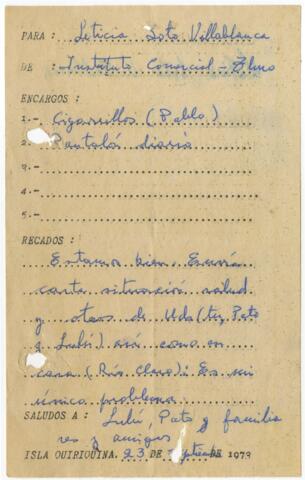 PARA : Leticia Soto Villablanca
DE : Instituto Comercial
ENCARGOS :
1.- Cigarrillos (Pablo)
2.- Pantalón diario
3.-
4.-
5.-
RECADOS :
Estamos bien. Envía
carta situación salud
y otros de Uds (tu, Pato
y Lulú) así como en
casa (Río Claro): Es mi
único problema.
SALUDOS A : Lulú, Pato y familia
res y amigos
ISLA QUIRIQUINA, 23 DE Septiembre DE 1973